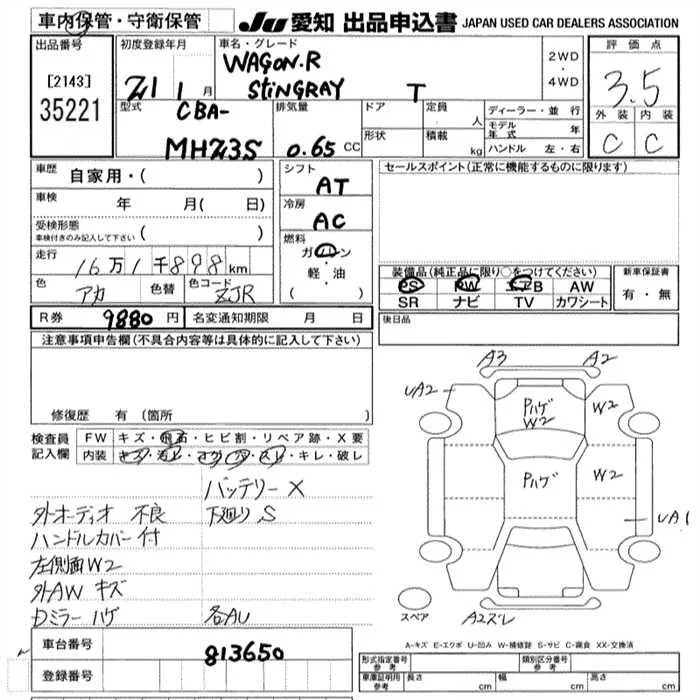 車内保管・守衛保管
JU 愛知 出品申込書 JAPAN USED CAR DEALERS ASSOCIATION
出品番号
[2143]
35221
初度登録年月
1 月
車名・グレード
WAGON.R
STINGRAY T
2WD
・
4WD
評価点
3.5
外装 内装
C C
型式
CBA-
MH23S
排気量
0.65 CC
ドア
形状
定員 人
積載 kg
ディーラー・並行
モデル年式 年
ハンドル 左・右
車歴
自家用・( )
車検 年 月( 日)
受検形態
車検付きのみ記入して下さい ( )
走行 16万1千898 km
色 アカ 色替 色コード ZJR
シフト
AT
冷房
AC
燃料
ガソリン
・
軽・油
( )
セールスポイント(正常に機能するものに限ります)
装備品(純正品に限り○をつけてください)
PS PW エアB AW
SR ナビ TV カワシート
新車保証書
有・無
R券 9880 円 名変通知期限 月 日
後日品
注意事項申告欄(不具合内容等は具体的に記入して下さい)
修復歴 有 (箇所
検査員
記入欄
FW キズ・飛石・ヒビ割・リペア跡・X要
内装 キズ・汚レ・コゲ・穴・スレ・キレ・破レ
バッテリーX
外オーディオ 不良 下廻りS
ハンドルカバー付
左側面W2
外AW キズ
Dミラーハゲ 各AU
A3 A2
UA2
Pハゲ
W2
W2
Pハゲ
W2
UA1
スペア
A2ズレ
A-キズ E-エクボ U-凹み W-補修跡 S-サビ C-腐食 XX-交換済
車台番号 813650
登録番号
形式指定番号
参考
類別区分番号
参考
車庫証明用
参考
長さ cm 幅 cm 高さ cm